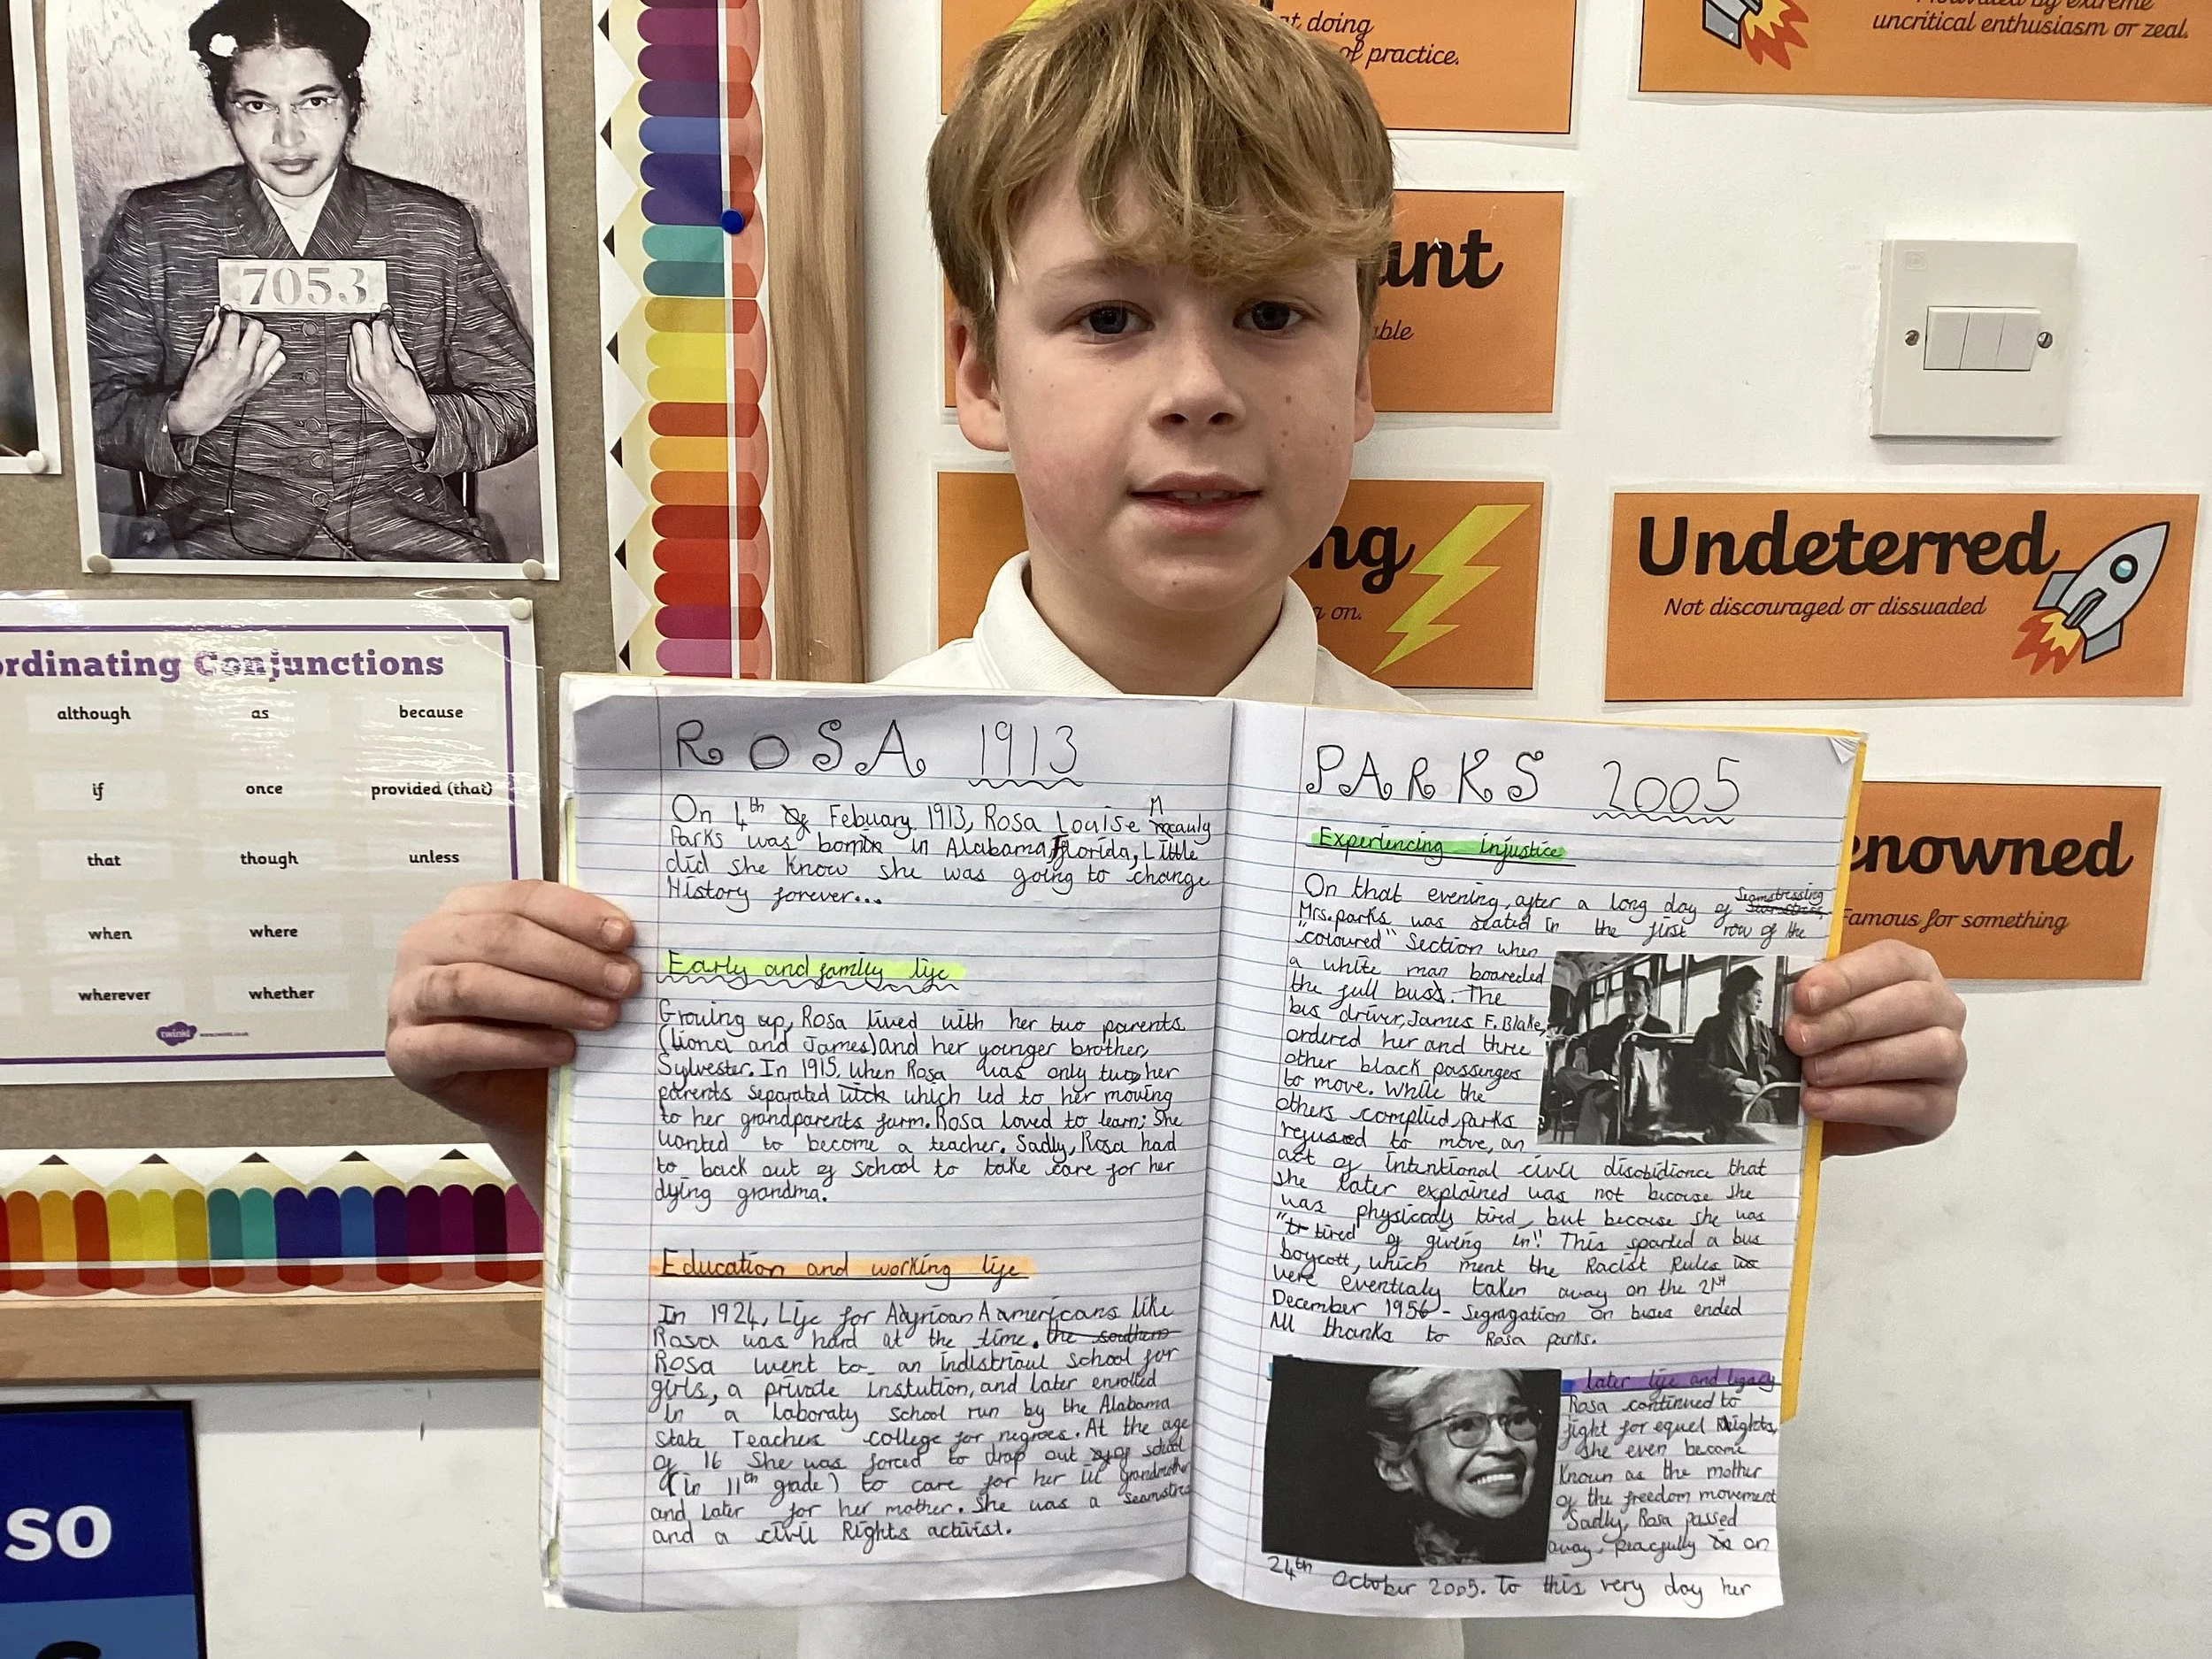 7053
ordinating Conjunctions
although as because
if once provided (that)
that though unless
when where
wherever whether
twinkl www.twinkl.co.uk
so
at doing
of practice.
uncritical enthusiasm or zeal.
ant
able
ng
g on.
Undeterred
Not discouraged or dissuaded
enowned
Famous for something
ROSA 1913
On 4th Febuary 1913, Rosa Louise Mcauly
Parks was born in Alabama, Florida, Little
did she know she was going to change
History forever...
Early and family life
Growing up, Rosa lived with her two parents
(Liona and James) and her younger brother,
Sylvester. In 1915, when Rosa was only two, her
parents separated which led to her moving
to her grandparents farm. Rosa loved to learn; She
wanted to become a teacher. Sadly, Rosa had
to back out of school to take care for her
dying grandma.
Education and working life
In 1924, Life for African Aamericans like
Rosa was hard at the time. the southern
Rosa went to an indistriaul school for
girls, a private instution, and later enrolled
in a laboraty school run by the Alabama
State Teachers college for negroes. At the age
of 16 She was forced to drop out of school
(in 11th grade) to care for her ill grandmother
and later for her mother. She was a seamstress
and a civil Rights activist.
PARKS 2005
Experiencing injustice
On that evening, after a long day of Seamstressing
Mrs.parks was seated in the first row of the
"coloured" Section when
a white man boareded
the full bus. The
bus driver, James F. Blake,
ordered her and three
other black passenges
to move. While the
others complied, parks
refused to move, an
act of intentional civil disobidience that
she later explained was not because she
was physicaly tired, but because she was
"tired of giving in". This sparked a bus
boycott, which ment the Racist Rules
were eventialy taken away on the 21st
December 1956 - Segragation on buses ended
All thanks to Rosa parks.
later life and legacy
Rosa continued to
fight for equel Rights,
she even became
Known as the mother
of the freedom movement
Sadly, Rosa passed
away, peacfully on
24th October 2005. To this very day her